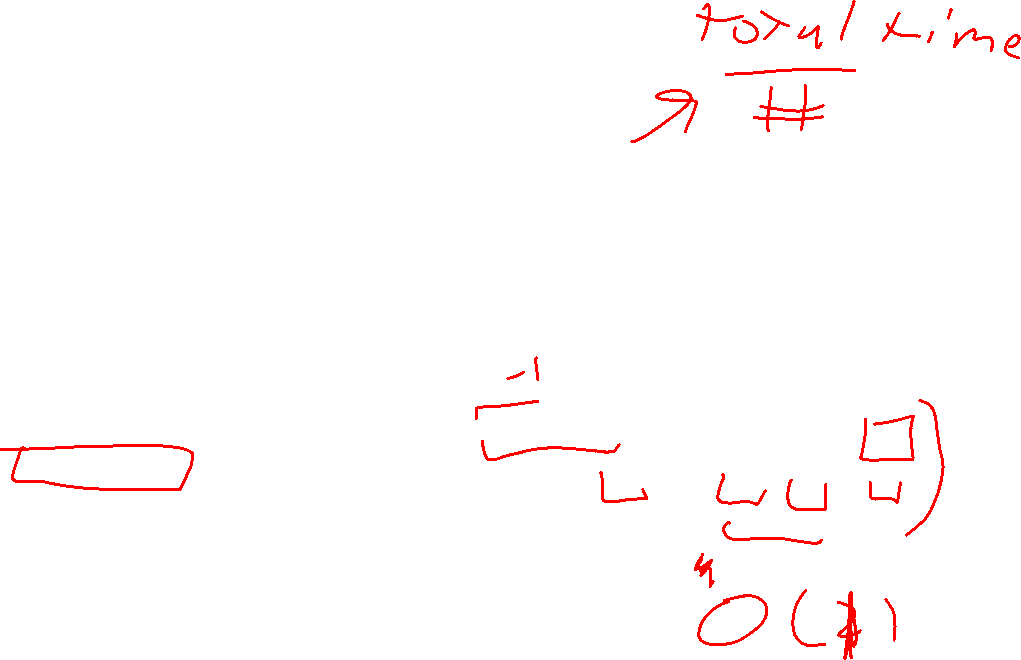 total time
#
-1
O( )